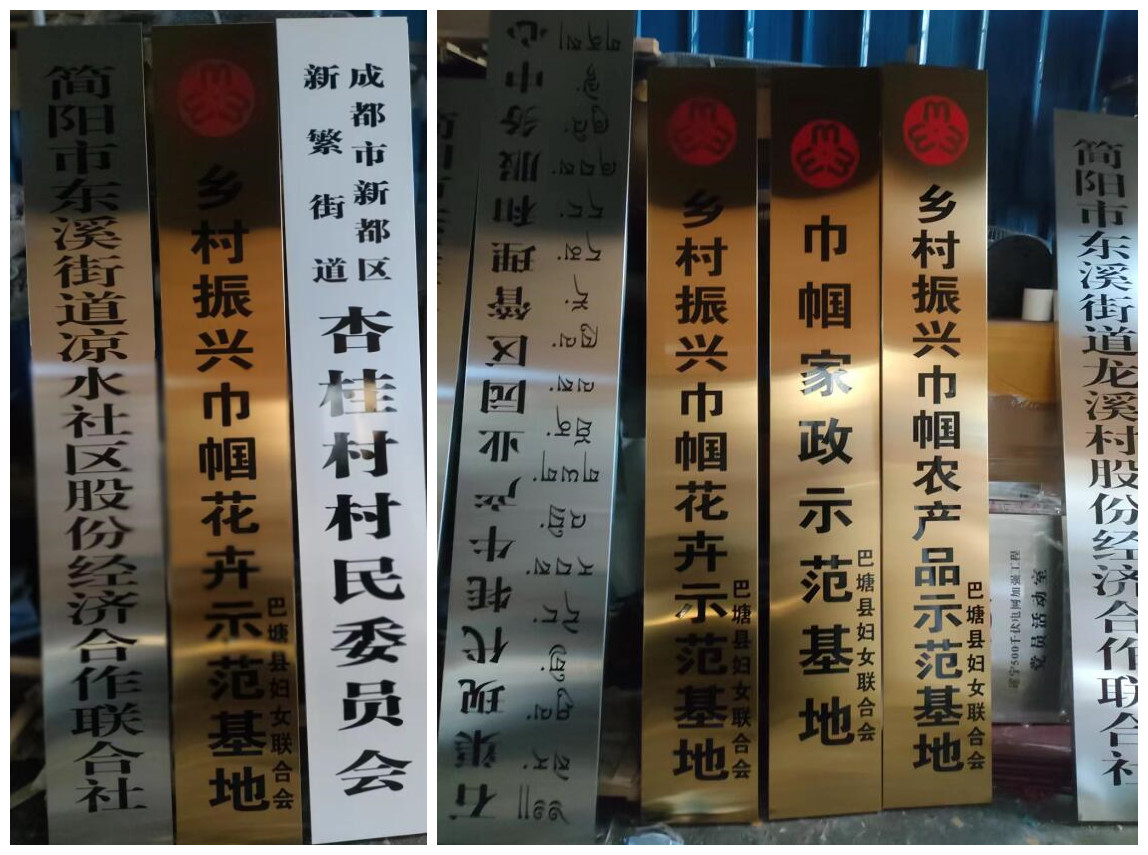 简阳市东溪街道凉水社区股份经济合作联合社
乡村振兴巾帼花卉示范基地
巴塘县妇女联合会
成都市新都区
新繁街道
杏桂村村民委员会
石渠集现代牦牛产业园区管理和服务中心
乡村振兴巾帼花卉示范基地
巴塘县妇女联合会
巾帼家政示范基地
巴塘县妇女联合会
乡村振兴巾帼农产品示范基地
巴塘县妇女联合会
党员活动室
简阳市东溪街道龙溪村股份经济合作联合社